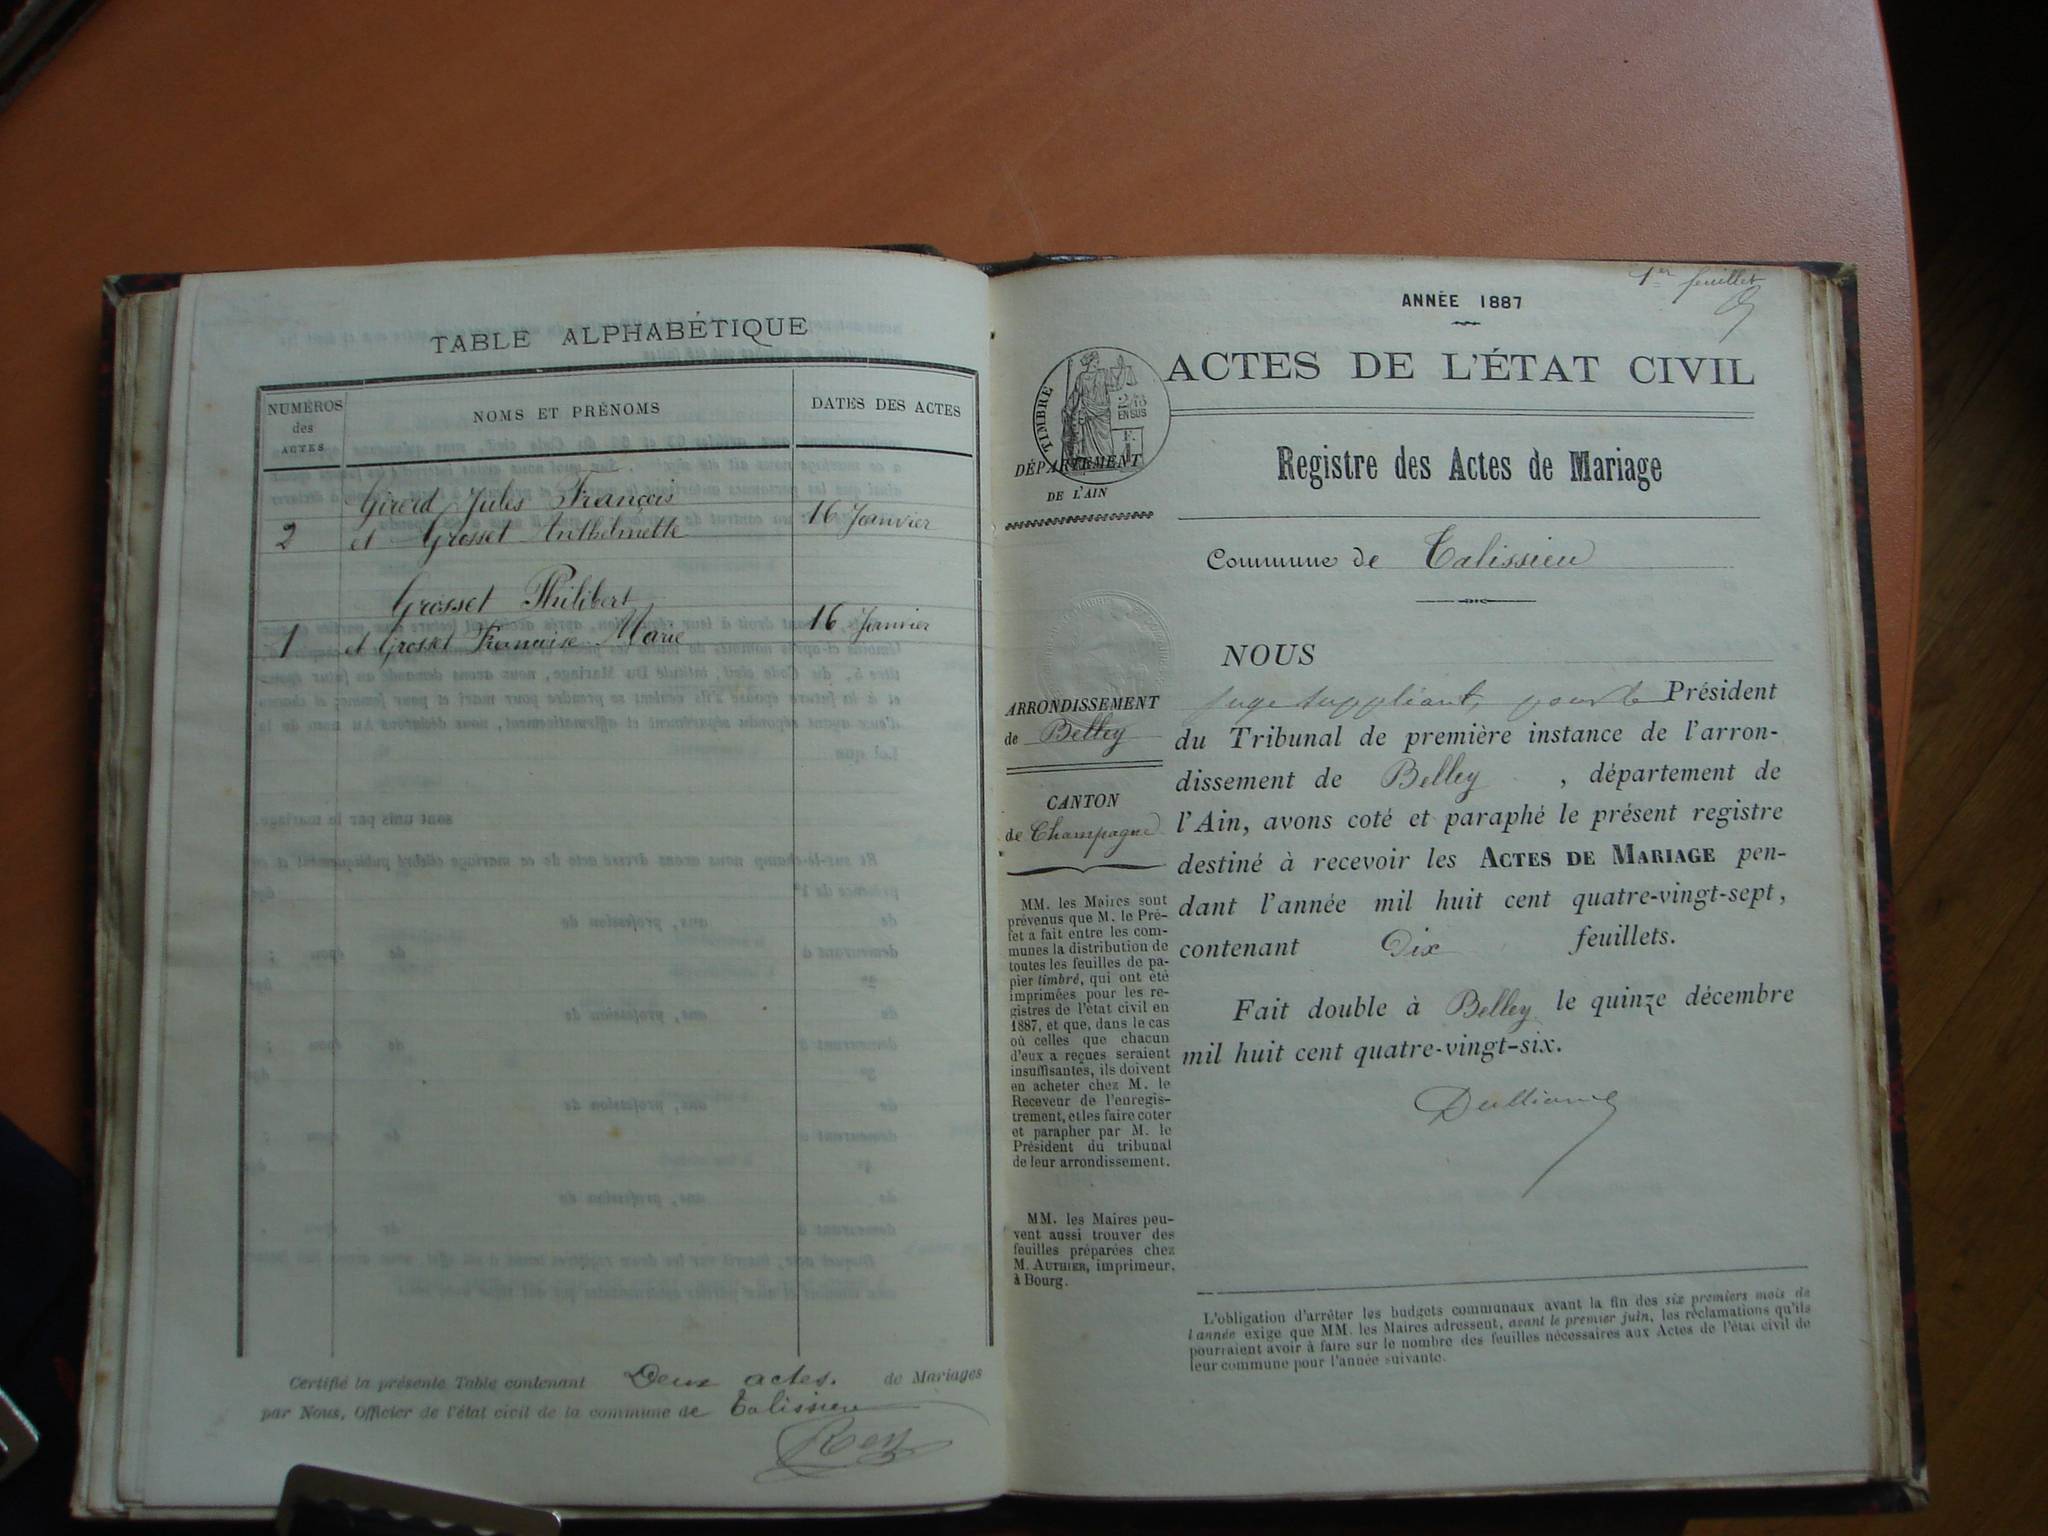 TABLE ALPHABÉTIQUE
NUMÉROS
des
ACTES
NOMS ET PRÉNOMS
DATES DES ACTES
Girerd Jules François
2 et Grosset Anthelmette 16 Janvier
Grosset Philibert
1 et Grosset Francoise Marie 16 Janvier
Certifié la présente Table contenant Deux actes. de Mariages
par Nous, Officier de l'état civil de la commune de Talissieu
Rey
1er feuillet
ANNÉE 1887
TIMBRE
2/10
EN SUS
F.
ACTES DE L'ÉTAT CIVIL
DÉPARTEMENT
DE L'AIN
Registre des Actes de Mariage
Commune de Talissieu
ARRONDISSEMENT
de Belley
CANTON
de Champagne
MM. les Maires sont
prévenus que M. le Pré-
fet a fait entre les com-
munes la distribution de
toutes les feuilles de pa-
pier timbré, qui ont été
imprimées pour les re-
gistres de l'état civil en
1887, et que, dans le cas
où celles que chacun
d'eux a reçues seraient
insuffisantes, ils doivent
en acheter chez M. le
Receveur de l'enregis-
trement, et les faire coter
et parapher par M. le
Président du tribunal
de leur arrondissement.
MM. les Maires peu-
vent aussi trouver des
feuilles préparées chez
M. AUTHIER, imprimeur,
à Bourg.
NOUS
juge suppléant, pour le Président
du Tribunal de première instance de l'arron-
dissement de Belley, département de
l'Ain, avons coté et paraphé le présent registre
destiné à recevoir les ACTES DE MARIAGE pen-
dant l'année mil huit cent quatre-vingt-sept,
contenant Dix feuillets.
Fait double à Belley le quinze décembre
mil huit cent quatre-vingt-six.
L'obligation d'arrêter les budgets communaux avant la fin des six premiers mois de
l'année exige que MM. les Maires adressent, avant le premier juin, les réclamations qu'ils
pourraient avoir à faire sur le nombre des feuilles nécessaires aux Actes de l'état civil de
leur commune pour l'année suivante.